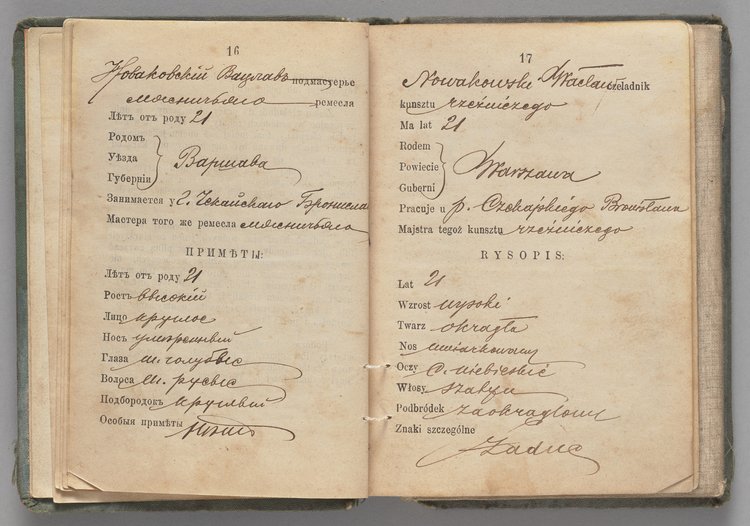 16
Новаковскій Вацлавъ подмастерье
мясничьяго ремесла
Лѣтъ отъ роду 21
Родомъ
Уѣзда
Губерніи
Варшава
Занимается у Г. Чекайскаго Бронислава
Мастера того же ремесла мясничьяго
ПРИМѢТЫ:
Лѣтъ отъ роду 21
Ростъ высокій
Лицо круглое
Носъ умѣренный
Глаза т. голубые
Волоса т. русые
Подбородокъ круглый
Особыя примѣты
17
Nowakowski Wacław czeladnik
kunsztu rzeźniczego
Ma lat 21
Rodem
Powiecie
Guberni
Warszawa
Pracuje u p. Czekajskiego Bronisława
Majstra tegoż kunsztu rzeźniczego
RYSOPIS:
Lat 21
Wzrost wysoki
Twarz okrągła
Nos umiarkowany
Oczy c. niebieskie
Włosy szatyn
Podbródek zaokrąglony
Znaki szczególne
Żadne